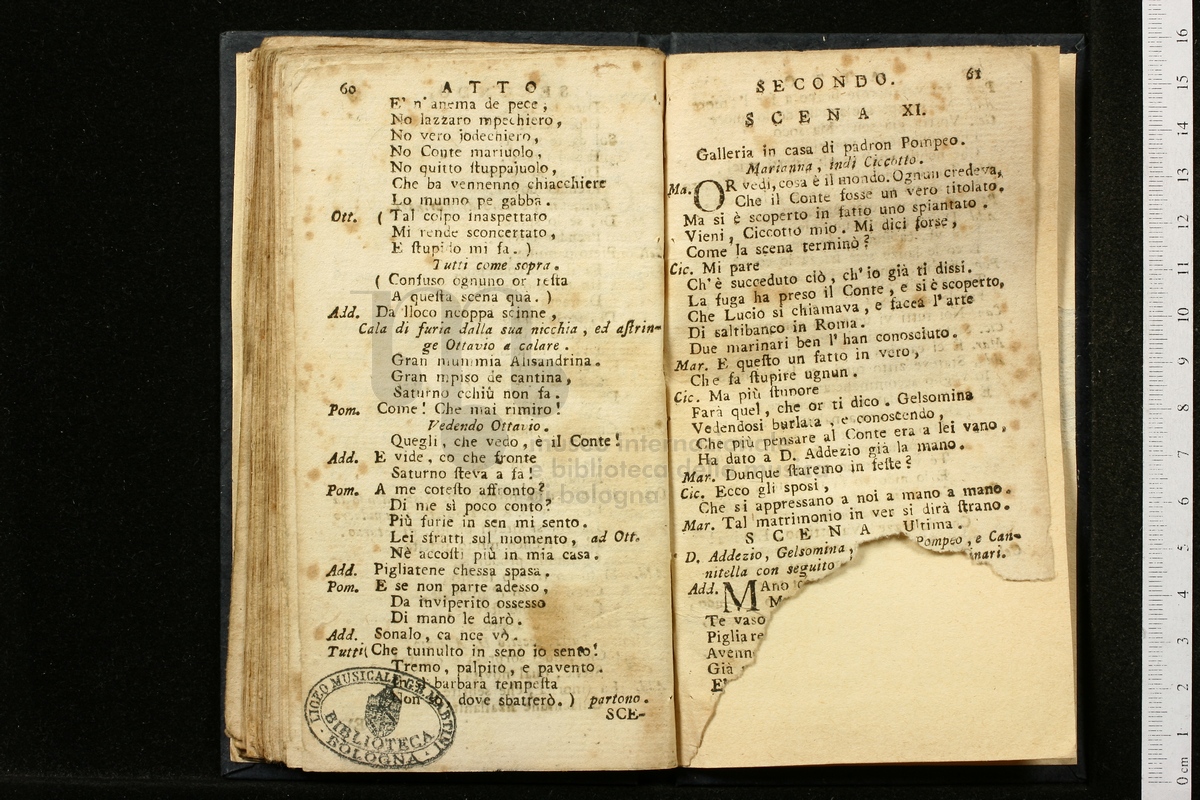 60 ATTO
E' n' anema de pece,
No lazzaro mpechiero,
No vero jodechiero,
No Conte mariuolo,
No quitto ſtuppajuolo,
Che ba vennenno chiacchiere
Lo munno pe gabba.
Ott. ( Tal colpo inaspettato
Mi rende sconcertato,
E ſtupido mi fa. )
Tutti come sopra.
( Confuso ognuno or reſta
A queſta scena quà. )
Add. Da lloco ncoppa scinne,
Cala di furia dalla sua nicchia, ed aſtrin-
ge Ottavio a calare.
Gran mummia Alisandrina.
Gran mpiso de cantina,
Saturno cchiù non fa.
Pom. Come! Che mai rimiro!
Vedendo Ottavio.
Quegli, che vedo, è il Conte!
Add. E vide, co che fronte
Saturno ſteva a fa!
Pom. A me coteſto affronto?
Di me sì poco conto?
Più furie in sen mi sento.
Lei sfratti sul momento, ad Ott.
Nè accoſti più in mia casa.
Add. Pigliatene chessa spasa.
Pom. E se non parte adesso,
Da inviperito ossesso
Di mano le darò.
Add. Sonalo, ca nce vò.
Tutti( Che tumulto in seno io sento!
Tremo, palpito, e pavento.
barbara tempeſta
Non dove sbatterò. ) partono.
SCE-
LICEO MUSICALE G.B. MARTINI
BIBLIOTECA
BOLOGNA
SECONDO. 61
SCENA XI.
Galleria in casa di padron Pompeo.
Marianna, indi Ciccotto.
Ma. OR vedi, cosa è il mondo. Ognun credeva,
Che il Conte fosse un vero titolato.
Ma si è scoperto in fatto uno spiantato.
Vieni, Ciccotto mio. Mi dici forse,
Come la scena terminò?
Cic. Mi pare
Ch' è succeduto ciò, ch' io già ti dissi.
La fuga ha preso il Conte, e si è scoperto,
Che Lucio si chiamava, e facea l' arte
Di saltibanco in Roma.
Due marinari ben l' han conosciuto.
Mar. E queſto un fatto in vero,
Che fa ſtupire ugnun.
Cic. Ma più ſtupore
Farà quel, che or ti dico. Gelsomina
Vedendosi burlata, e conoscendo,
Che più pensare al Conte era a lei vano,
Ha dato a D. Addezio già la mano.
Mar. Dunque ſtaremo in feſte?
Cic. Ecco gli sposi,
Che si appressano a noi a mano a mano.
Mar. Tal matrimonio in ver si dirà ſtrano.
SCENA Ultima.
D. Addezio, Gelsomina, Pompeo, e Can-
nitella con seguito inari.
Add. MAno
M
Te vaso
Pigliare
Avenn
Già
E'
museo internazionale
e biblioteca della musica
di bologna
0 cm 1 2 3 4 5 6 7 8 9 10 11 12 13 14 15 16